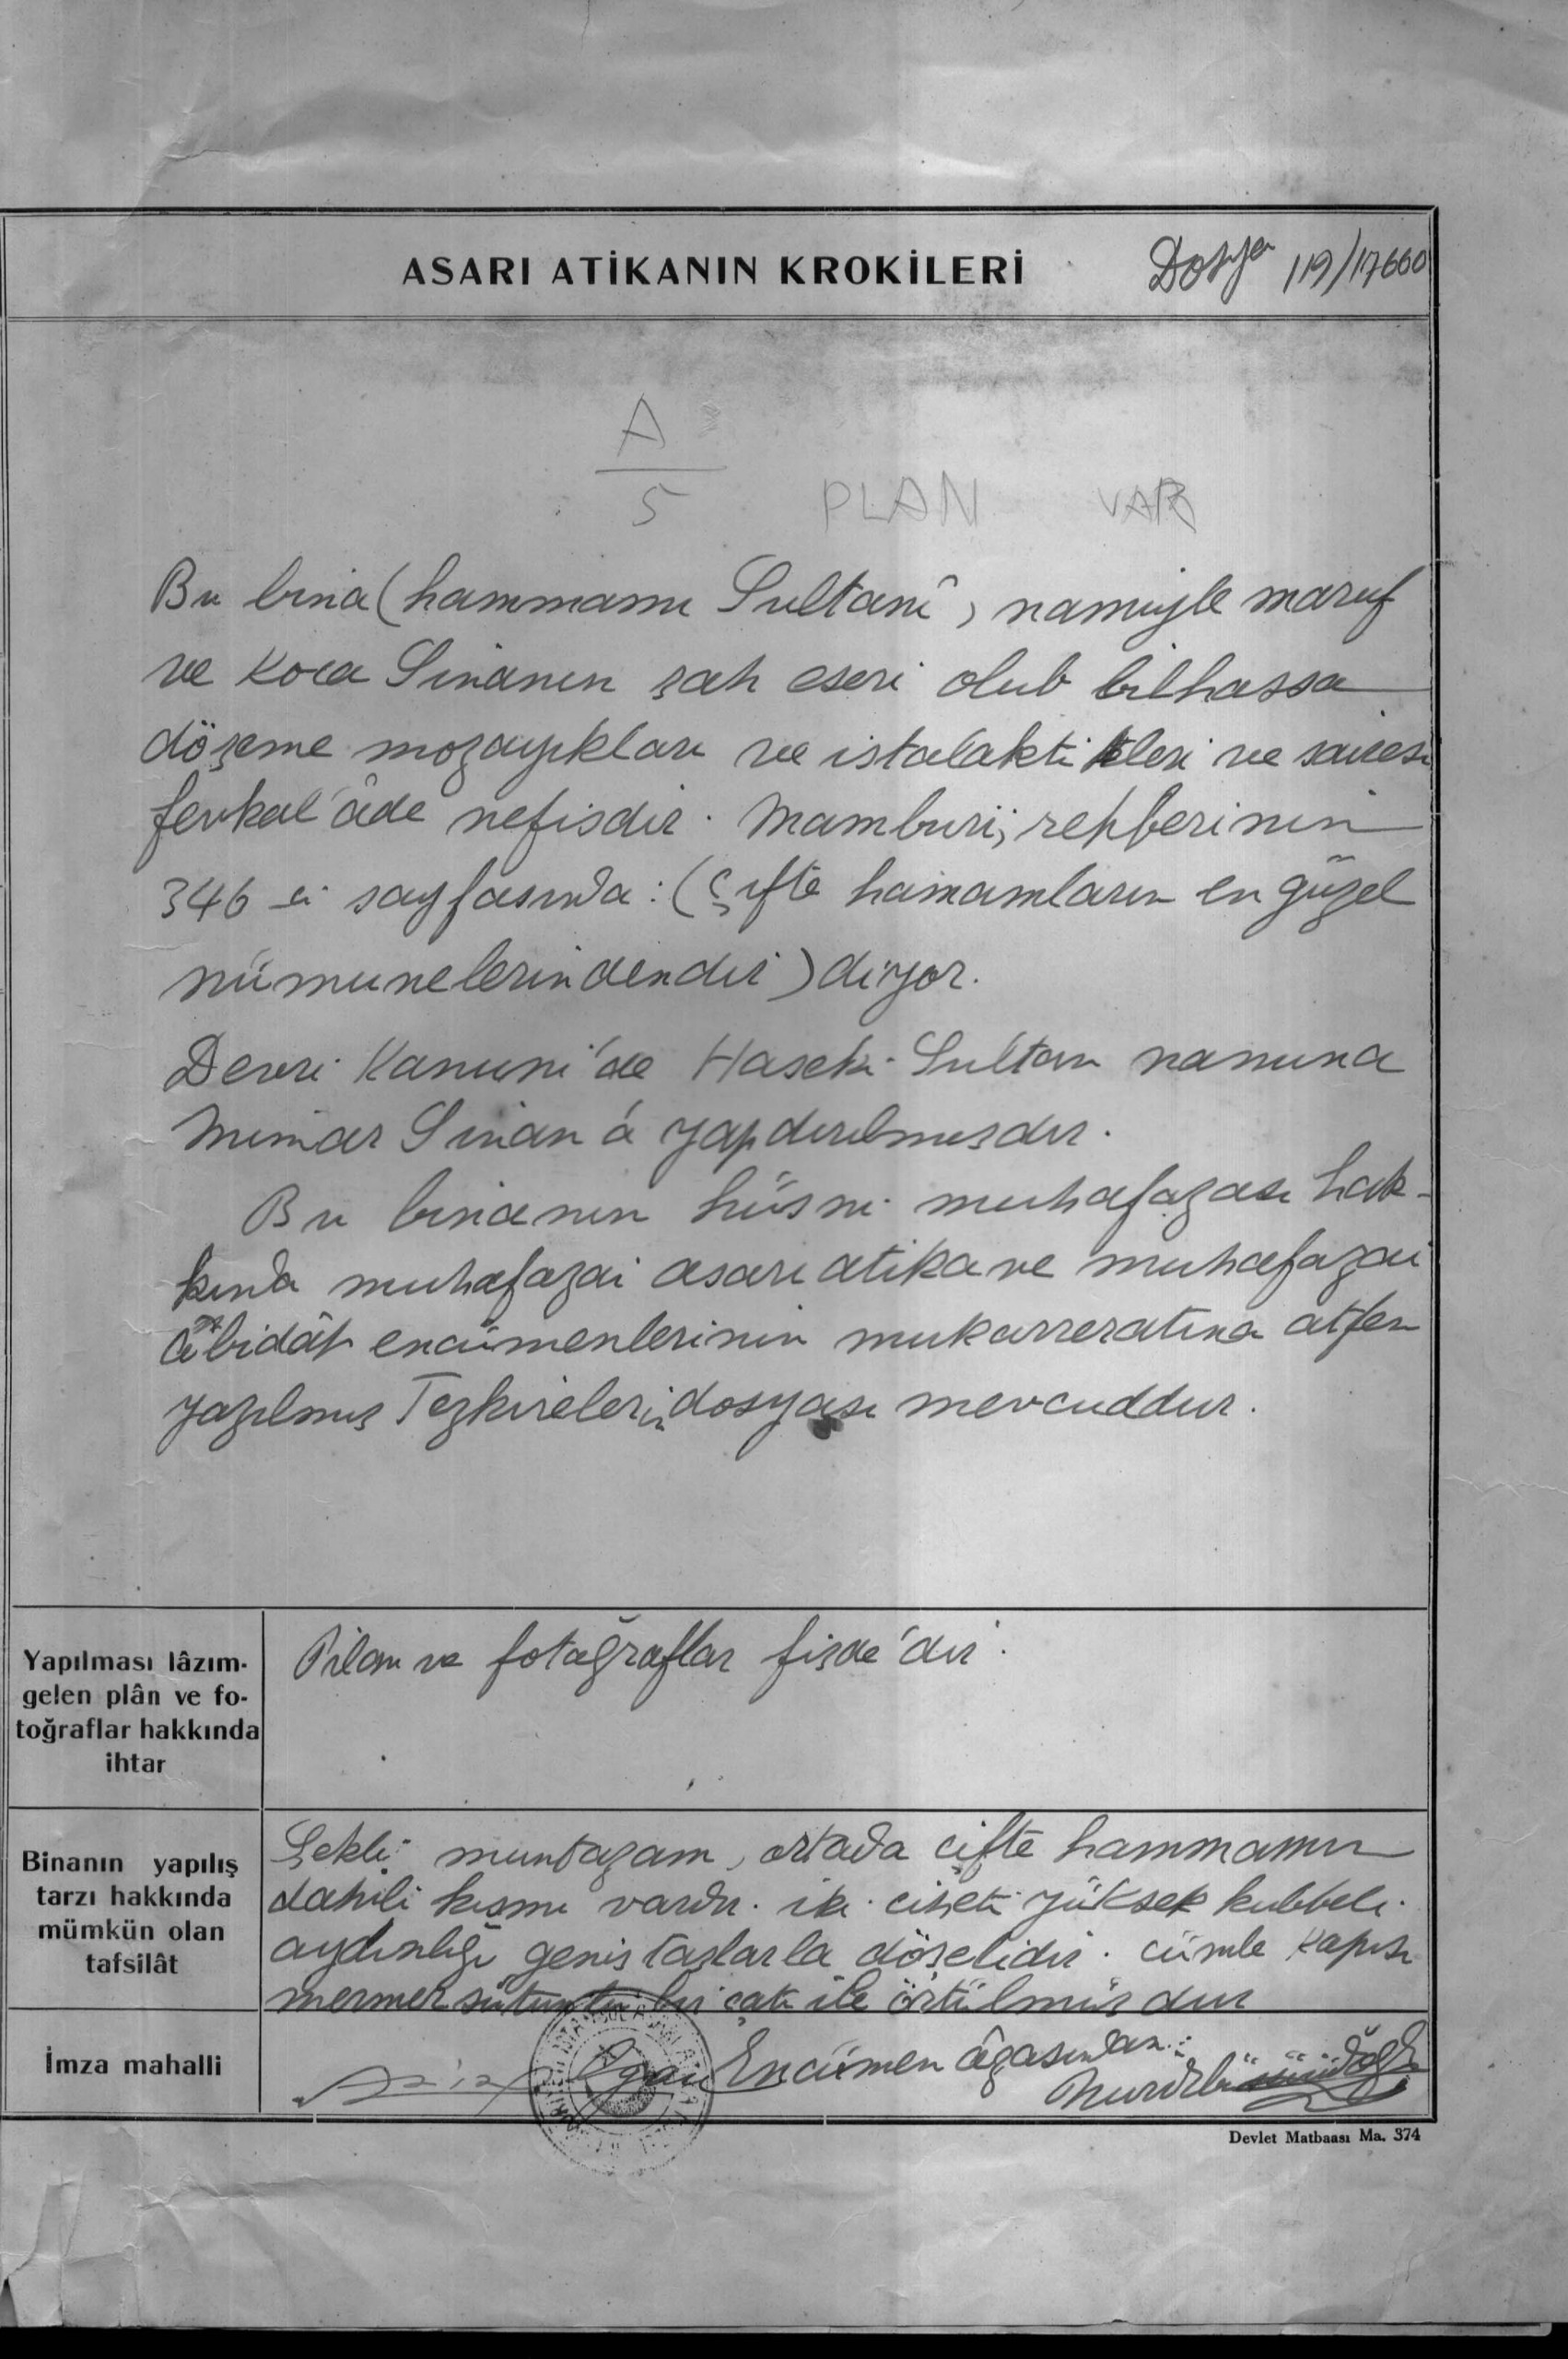 ASARI ATİKANIN KROKİLERİ
Dosya 119/17660
A
5
PLAN VAR
Bu bina (hammamı Sultanî) namiyle maruf
ve Koca Sinanın şah eseri olub bilhassa
döşeme mozayıkları ve istalaktitleri ve sairesi
fevkal'âde nefisdir. Mamburi, rehberinin
346 cı sayfasında: (Çifte hamamların en güzel
nümunelerindendir) diyor.
Devri Kanuni'de Haseki Sultan namına
Mimar Sinan'a yapdırılmışdır.
Bu binanın hüsni muhafazası hak-
kında muhafazai asarı atika ve muhafazai
âbidât encümenlerinin mukarreratına atfen
yazılmış Tezkirelerin dosyası mevcuddur.
Yapılması lâzım-
gelen plân ve fo-
toğraflar hakkında
ihtar
Pilan ve fotağraflar fişde'dir.
Binanın yapılış
tarzı hakkında
mümkün olan
tafsilât
Şekli muntazam, ortada çifte hammamın
dahili kısmı vardır. iki ciheti yüksek kubbeli
aydınlığı geniş taşlarla döşelidir. cümle kapısı
mermer sütunlu bir çatı ile örtülmüşdür
İmza mahalli
Aziz Ogan
Encümen âzasından:
Devlet Matbaası Ma. 374